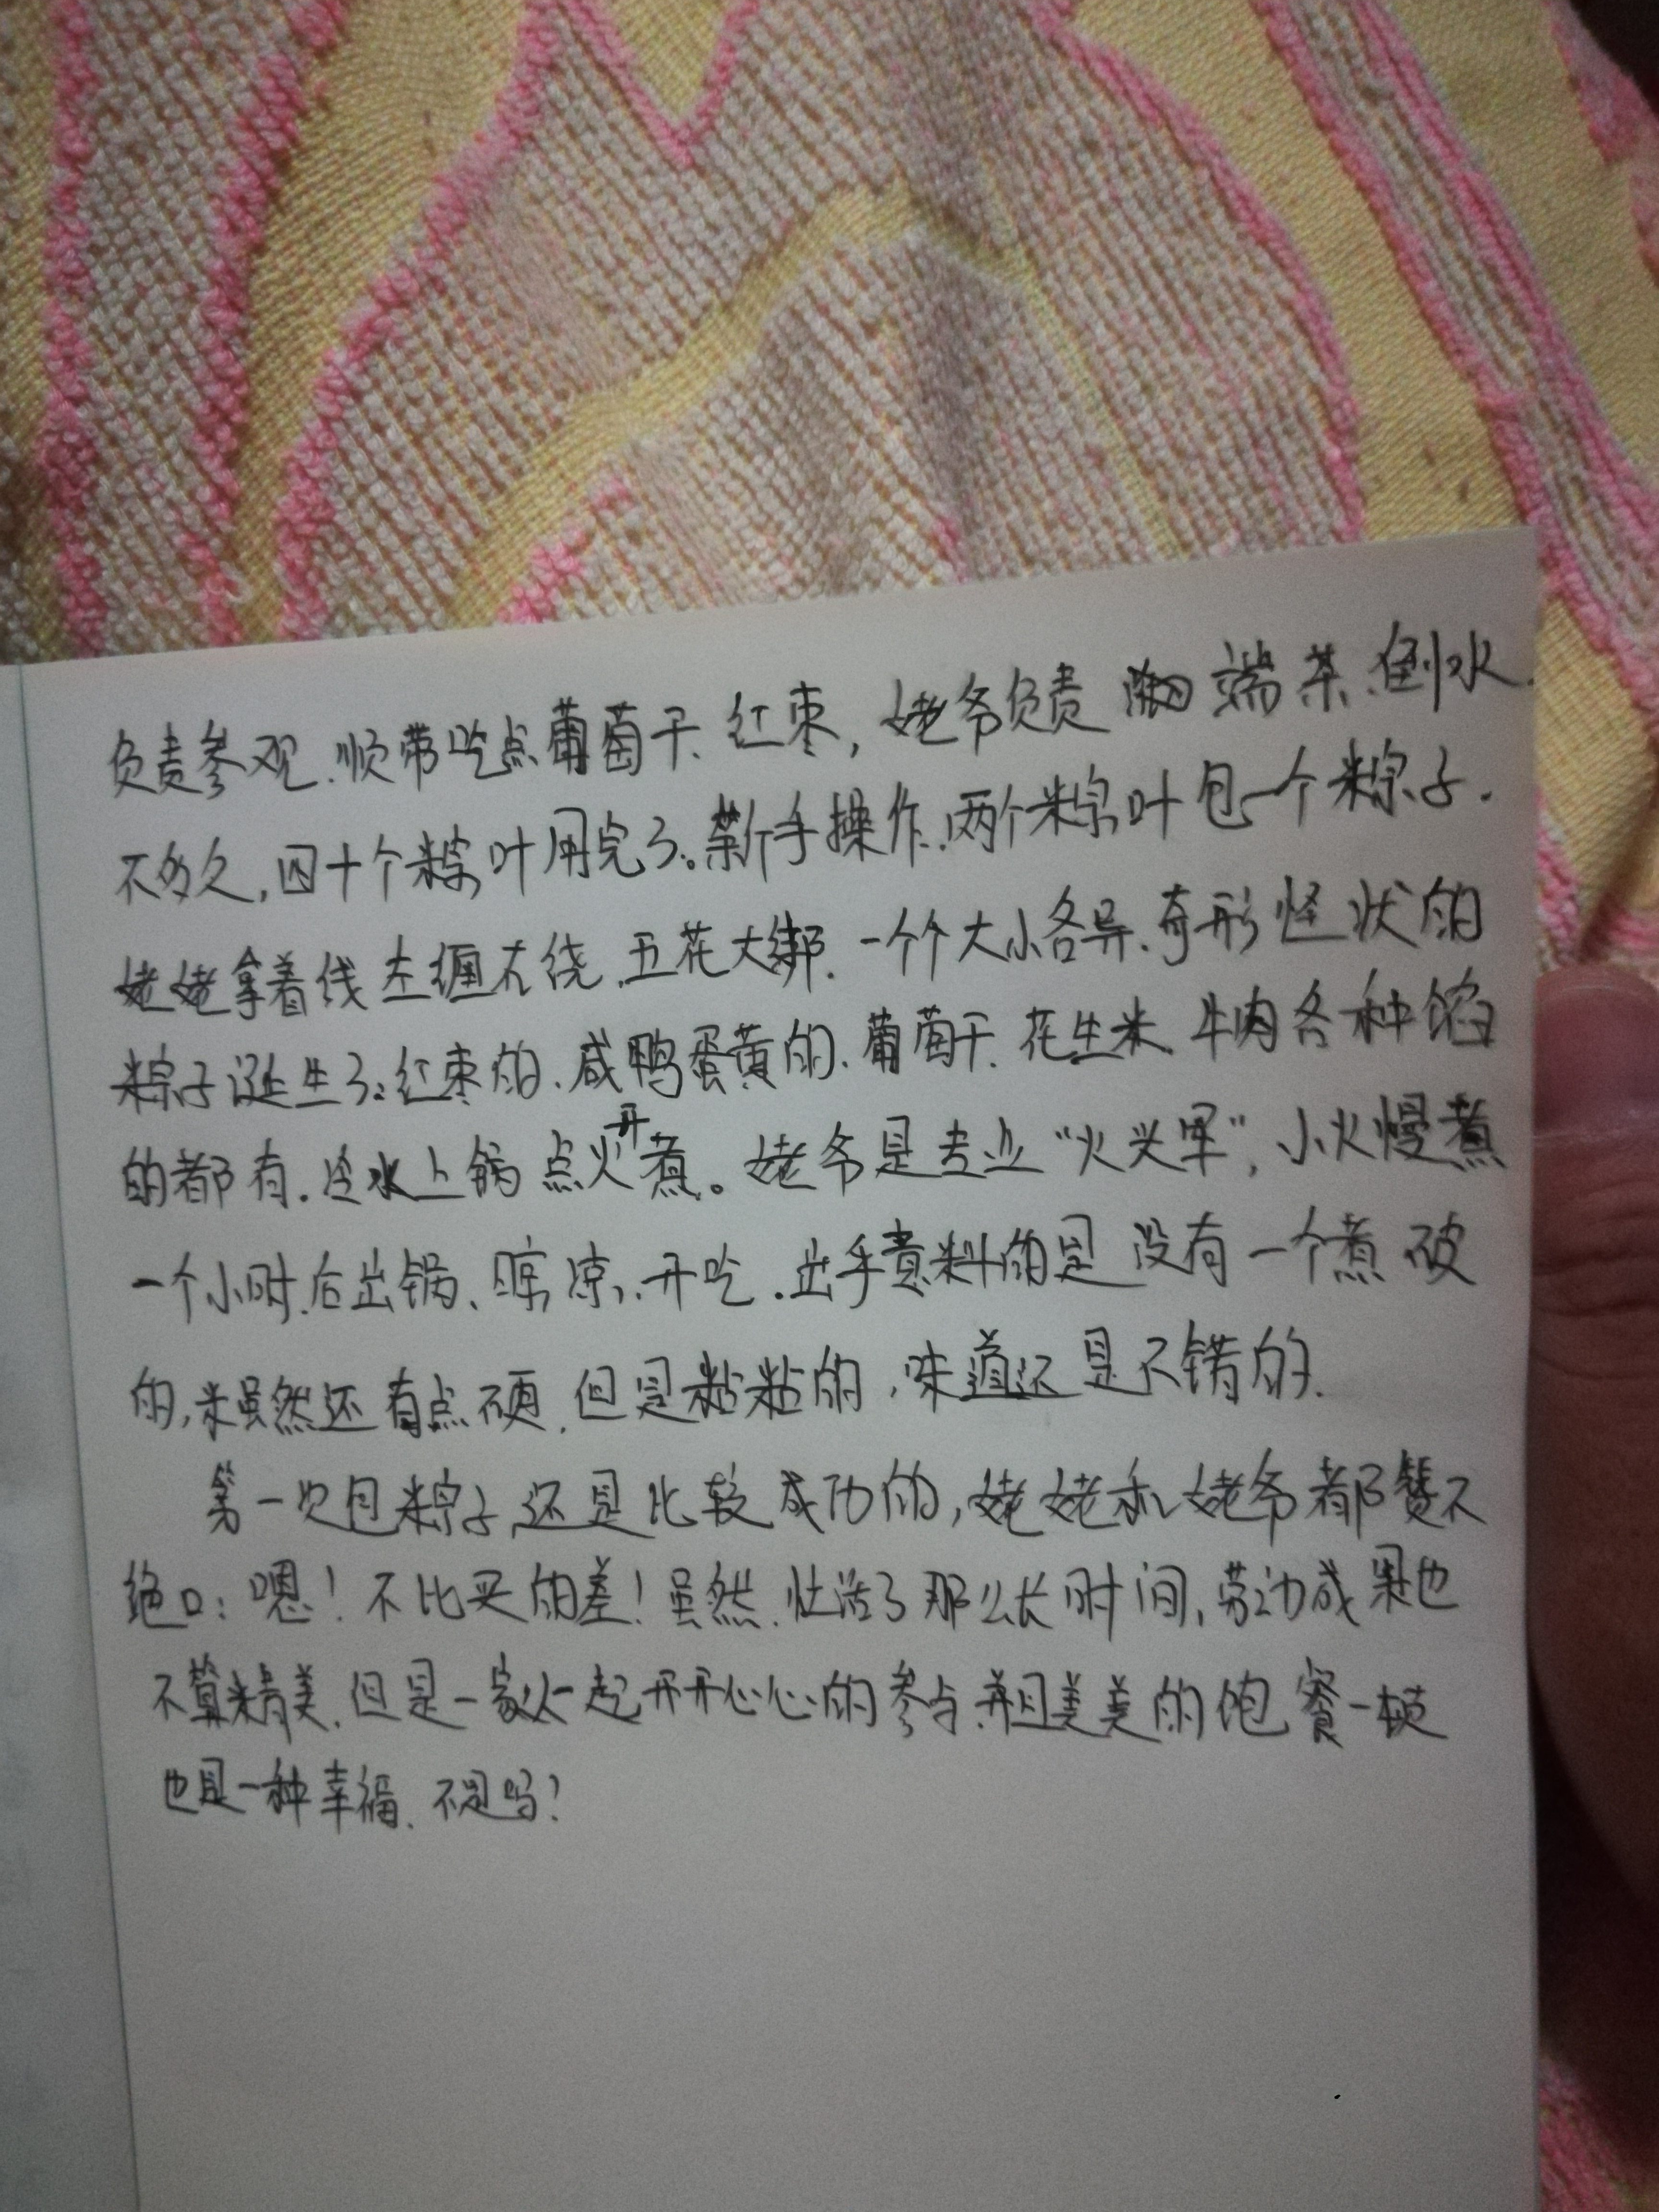 负责参观.顺带吃点葡萄干、红枣,姥爷负责 端茶.倒水.
不多久,四十个粽叶用完了。新手操作.两个粽叶包一个粽子.
姥姥拿着线左缠右绕.五花大绑.一个个大小各异.奇形怪状的
粽子诞生了。红枣的、咸鸭蛋黄的、葡萄干、花生米、牛肉各种馅
的都有.冷水上锅点火开煮。姥爷是专业“火头军”,小火慢煮
一个小时.后出锅、晾凉、开吃.出乎意料的是没有一个煮破
的,米虽然还有点硬.但是粘粘的,味道还是不错的.
第一次包粽子还是比较成功的,姥姥和姥爷都赞不
绝口:嗯!不比买的差!虽然.忙活了那么长时间,劳动成果也
不算精美.但是一家人一起开开心心的参与.并且美美的饱餐一顿
也是一种幸福.不是吗?